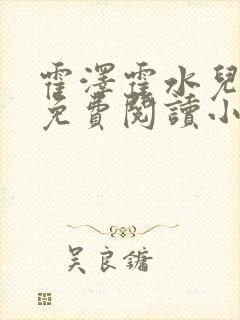 霍澤霍水兒
免費閱讀小
吴良鏞